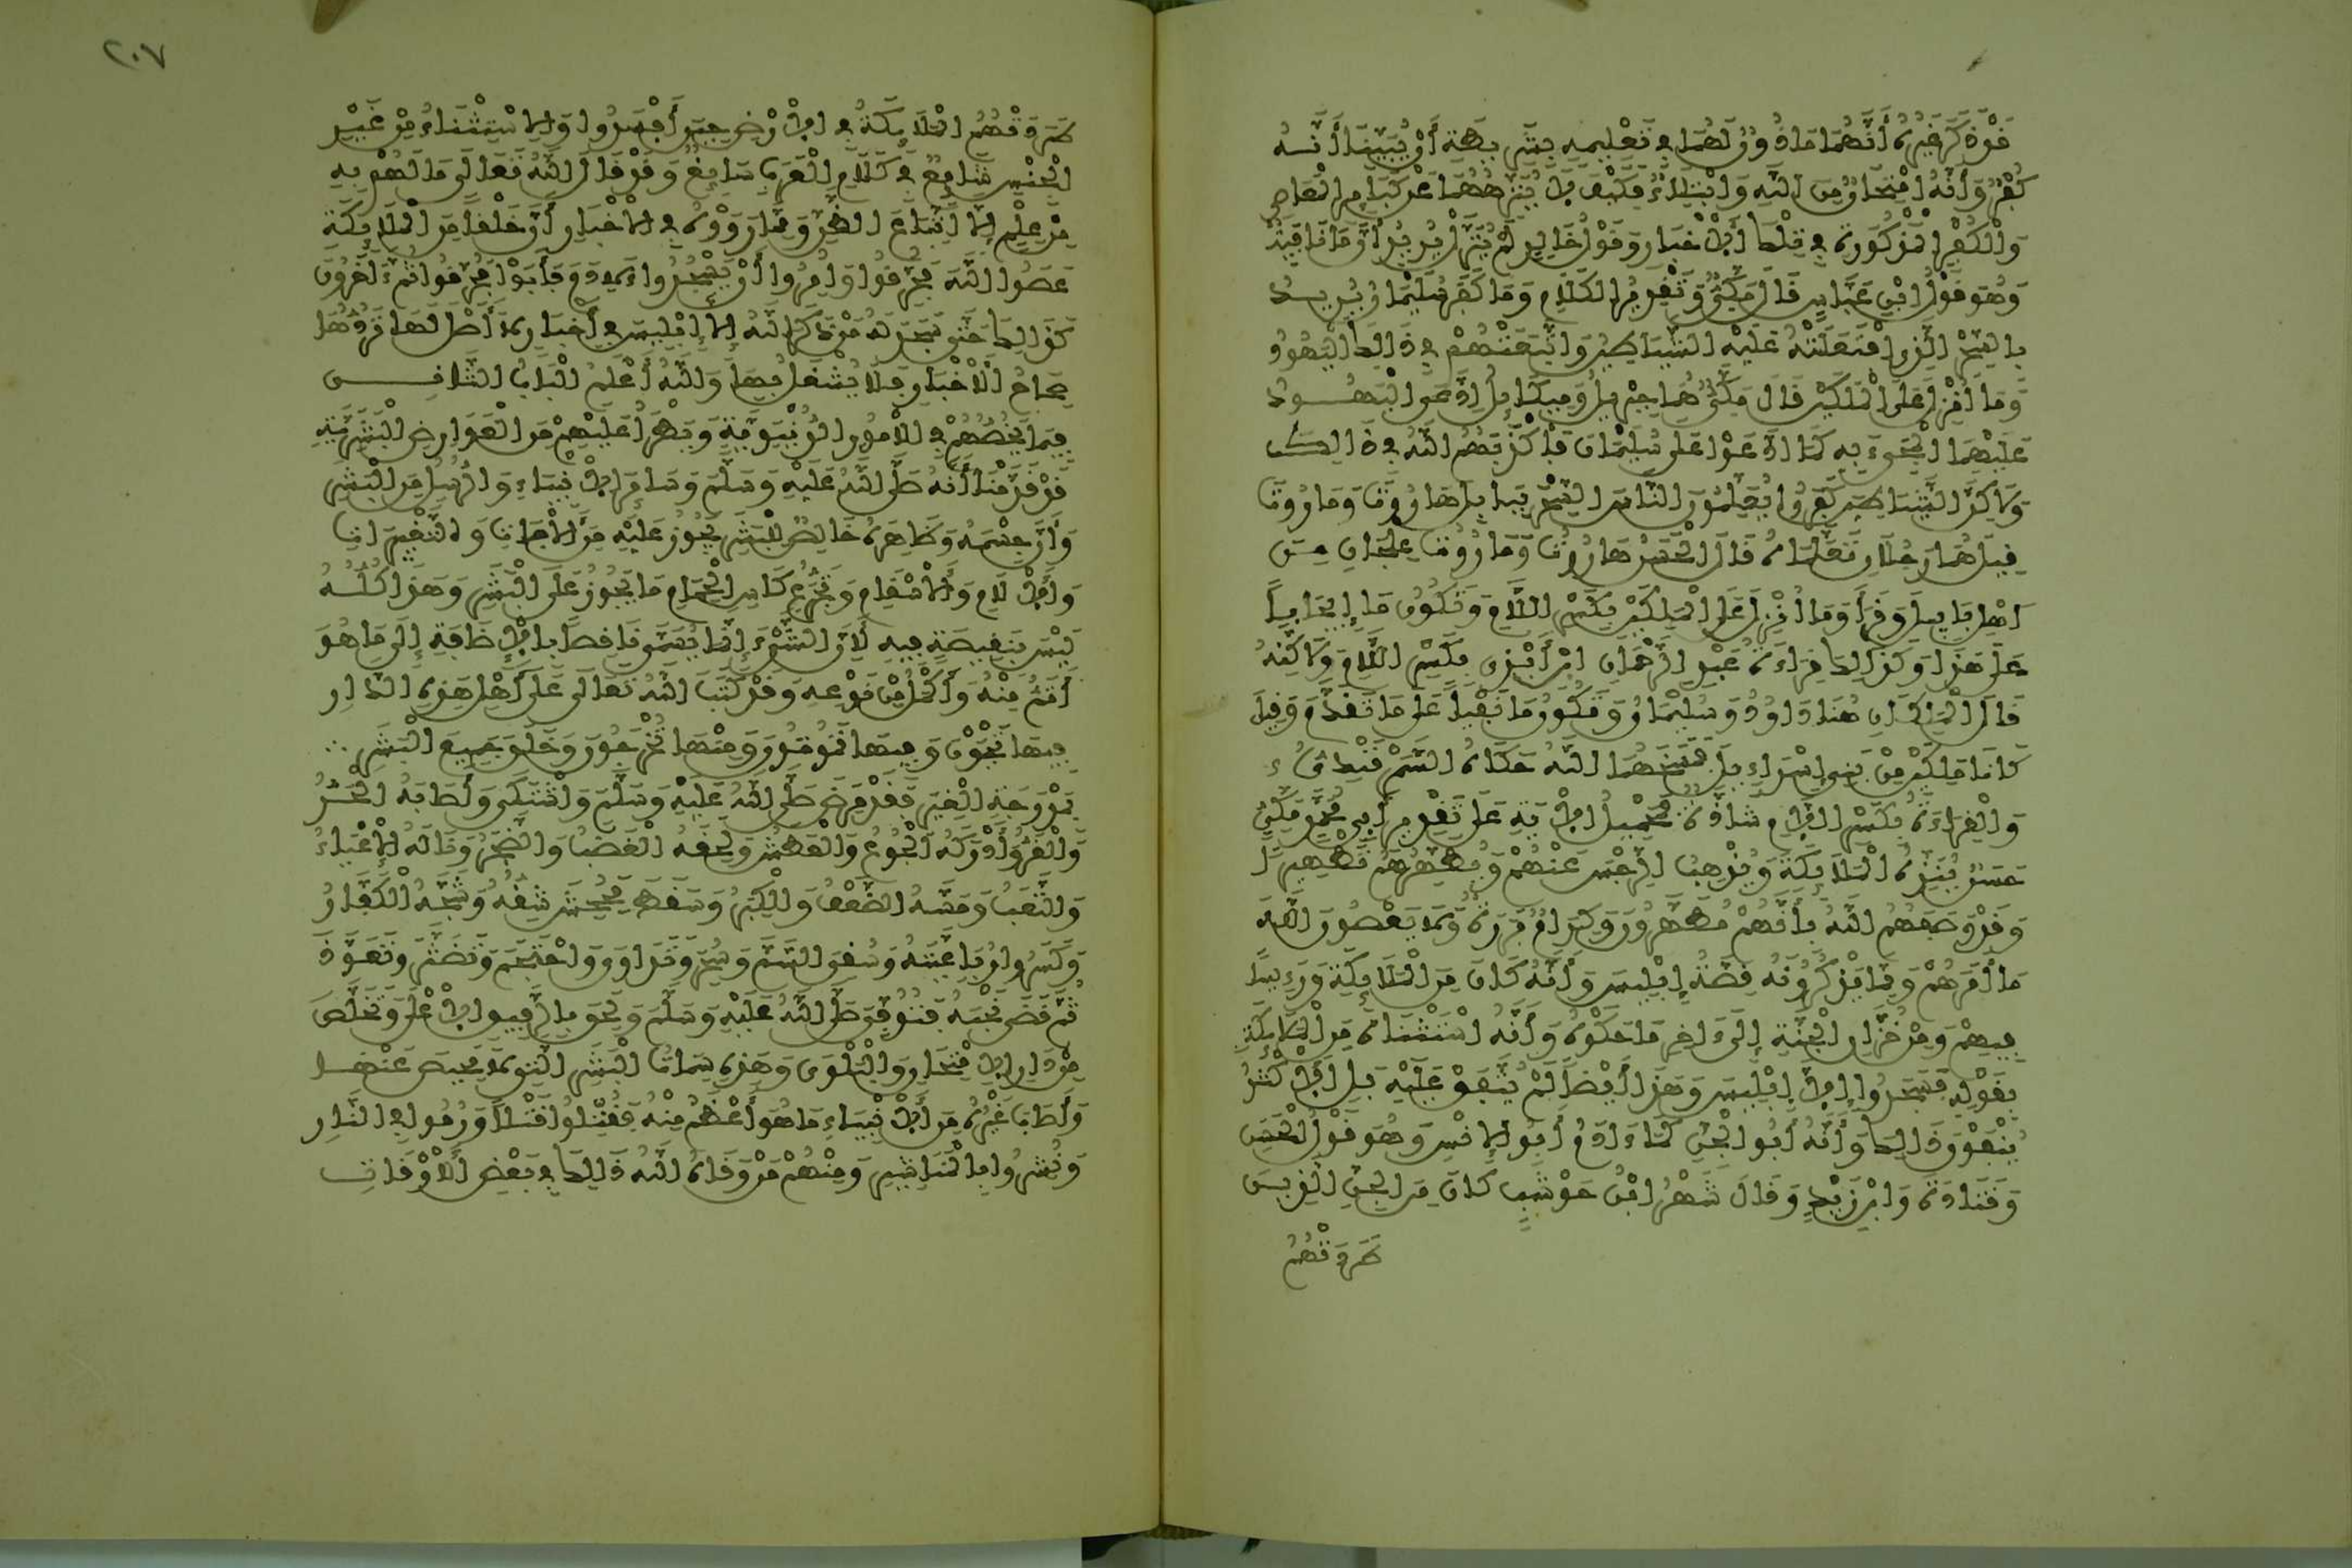 قوة كرغيره أنهما ماذون لهما في تعليمه بشريطة أن يبينا أنه
كفر وأنه امتحان من الله وابتلاء فكيف لا ينزههما عن كبائر المعاصي
والكفر المذكورة في تلك الأخبار وقول خالد لم ينزل يريد أن نافية
وهو قول ابن عباس قال مكي وتقدير الكلام وما كفر سليمان يريد
بالسحر الذي افتعلته عليه الشياطين واتبعتهم في ذلك اليهود
وما أنزل على الملكين قال مكي هما جبريل وميكائيل ادعى اليهود
عليهما المجيء به كما ادعوا على سليمان فأكذبهم الله في ذلك
ولكن الشياطين كفروا يعلمون الناس السحر ببابل هاروت وماروت
قيل هما رجلان تعلماه قال الحسن هاروت وماروت علجان من
أهل بابل وقرأ وما أنزل على الملكين بكسر اللام وتكون ما إيجابا
على هذا وكذلك قراءة عبد الرحمان ابن أبزى بكسر اللام ولكنه
قال الملكان هنا داوود وسليمان وتكون ما نفيا على ما تقدم وقيل
كانا ملكين من بني إسراءيل فمسخهما الله حكاه السمرقندي
والقراءة بكسر اللام شاذة فمحمل الآية على تقدير أبي محمد مكي
حسن ينزه الملائكة ويذهب الرجس عنهم ويطهرهم تطهيرا
وقد وصفهم الله بأنهم مطهرون وكرام بررة ولا يعصون الله
ما أمرهم ومما يذكرونه قصة إبليس وأنه كان من الملائكة ورءيسا
فيهم ومن خزان الجنة إلى ءاخر ما حكوه وأنه استثناه من الملائكة
بقوله فسجدوا إلا إبليس وهذا أيضا لم يتفق عليه بل الأكثر
ينفون ذلك وأنه أبو الجن كما ءادم أبو الإنس وهو قول الحسن
وقتادة وابن زيد وقال شهر ابن حوشب كان من الجن الذين
طردتهم
٢٠٧
طردتهم الملائكة في الأرض حين أفسدوا والاستثناء من غير
الجنس شائع في كلام العرب سائغ وقد قال الله تعالى ما لهم به
من علم إلا اتباع الظن ومما رووه في الأخبار أن خلقا من الملائكة
عصوا الله فحرقوا وأمروا أن يسجدوا لآدم فأبوا فحرقوا ثم ءاخرون
كذلك حتى سجد له من ذكر الله إلا إبليس في أخبار لا أصل لها تردها
صحاح الأخبار فلا يشتغل بها والله أعلم الباب الثاني
فيما يخصهم في الأمور الدنيوية ويطرأ عليهم من العوارض البشرية
قد قدمنا أنه صلى الله عليه وسلم وسائر الأنبياء والرسل من البشر
وأن جسمه وظاهره خالص للبشر يجوز عليه من الآفات والتغييرات
والآلام والأسقام وتجرع كأس الحمام ما يجوز على البشر وهذا كله
ليس بنقيصة فيه لأن الشيء إنما يسمى ناقصا بالإضافة إلى ما هو
أتم منه وأكمل من نوعه وقد كتب الله تعالى على أهل هذه الدار
فيها تحيون وفيها تموتون ومنها تخرجون وخلق جميع البشر ∴
بمدرجة الغير فقد مرض صلى الله عليه وسلم واشتكى وأصابه الحر
والقر وأدركه الجوع والعطش ولحقه الغضب والضجر وناله الإعياء
والتعب ومسه الضعف والكبر وسقط فجحش شقه وشجه الكفار
وكسروا رباعيته وسقي السم وسحر وتداوى واحتجم وتنشر وتعوذ
ثم قضى نحبه فتوفي صلى الله عليه وسلم ولحق بالرفيق الأعلى وتخلص
من دار الامتحان والبلوى وهذه سمات البشر التي لا محيص عنها
وأصاب غيره من الأنبياء ما هو أعظم منه فقتلوا قتلا ورموا في النار
ونشروا بالمناشير ومنهم من وقاه الله ذلك في بعض الأوقات